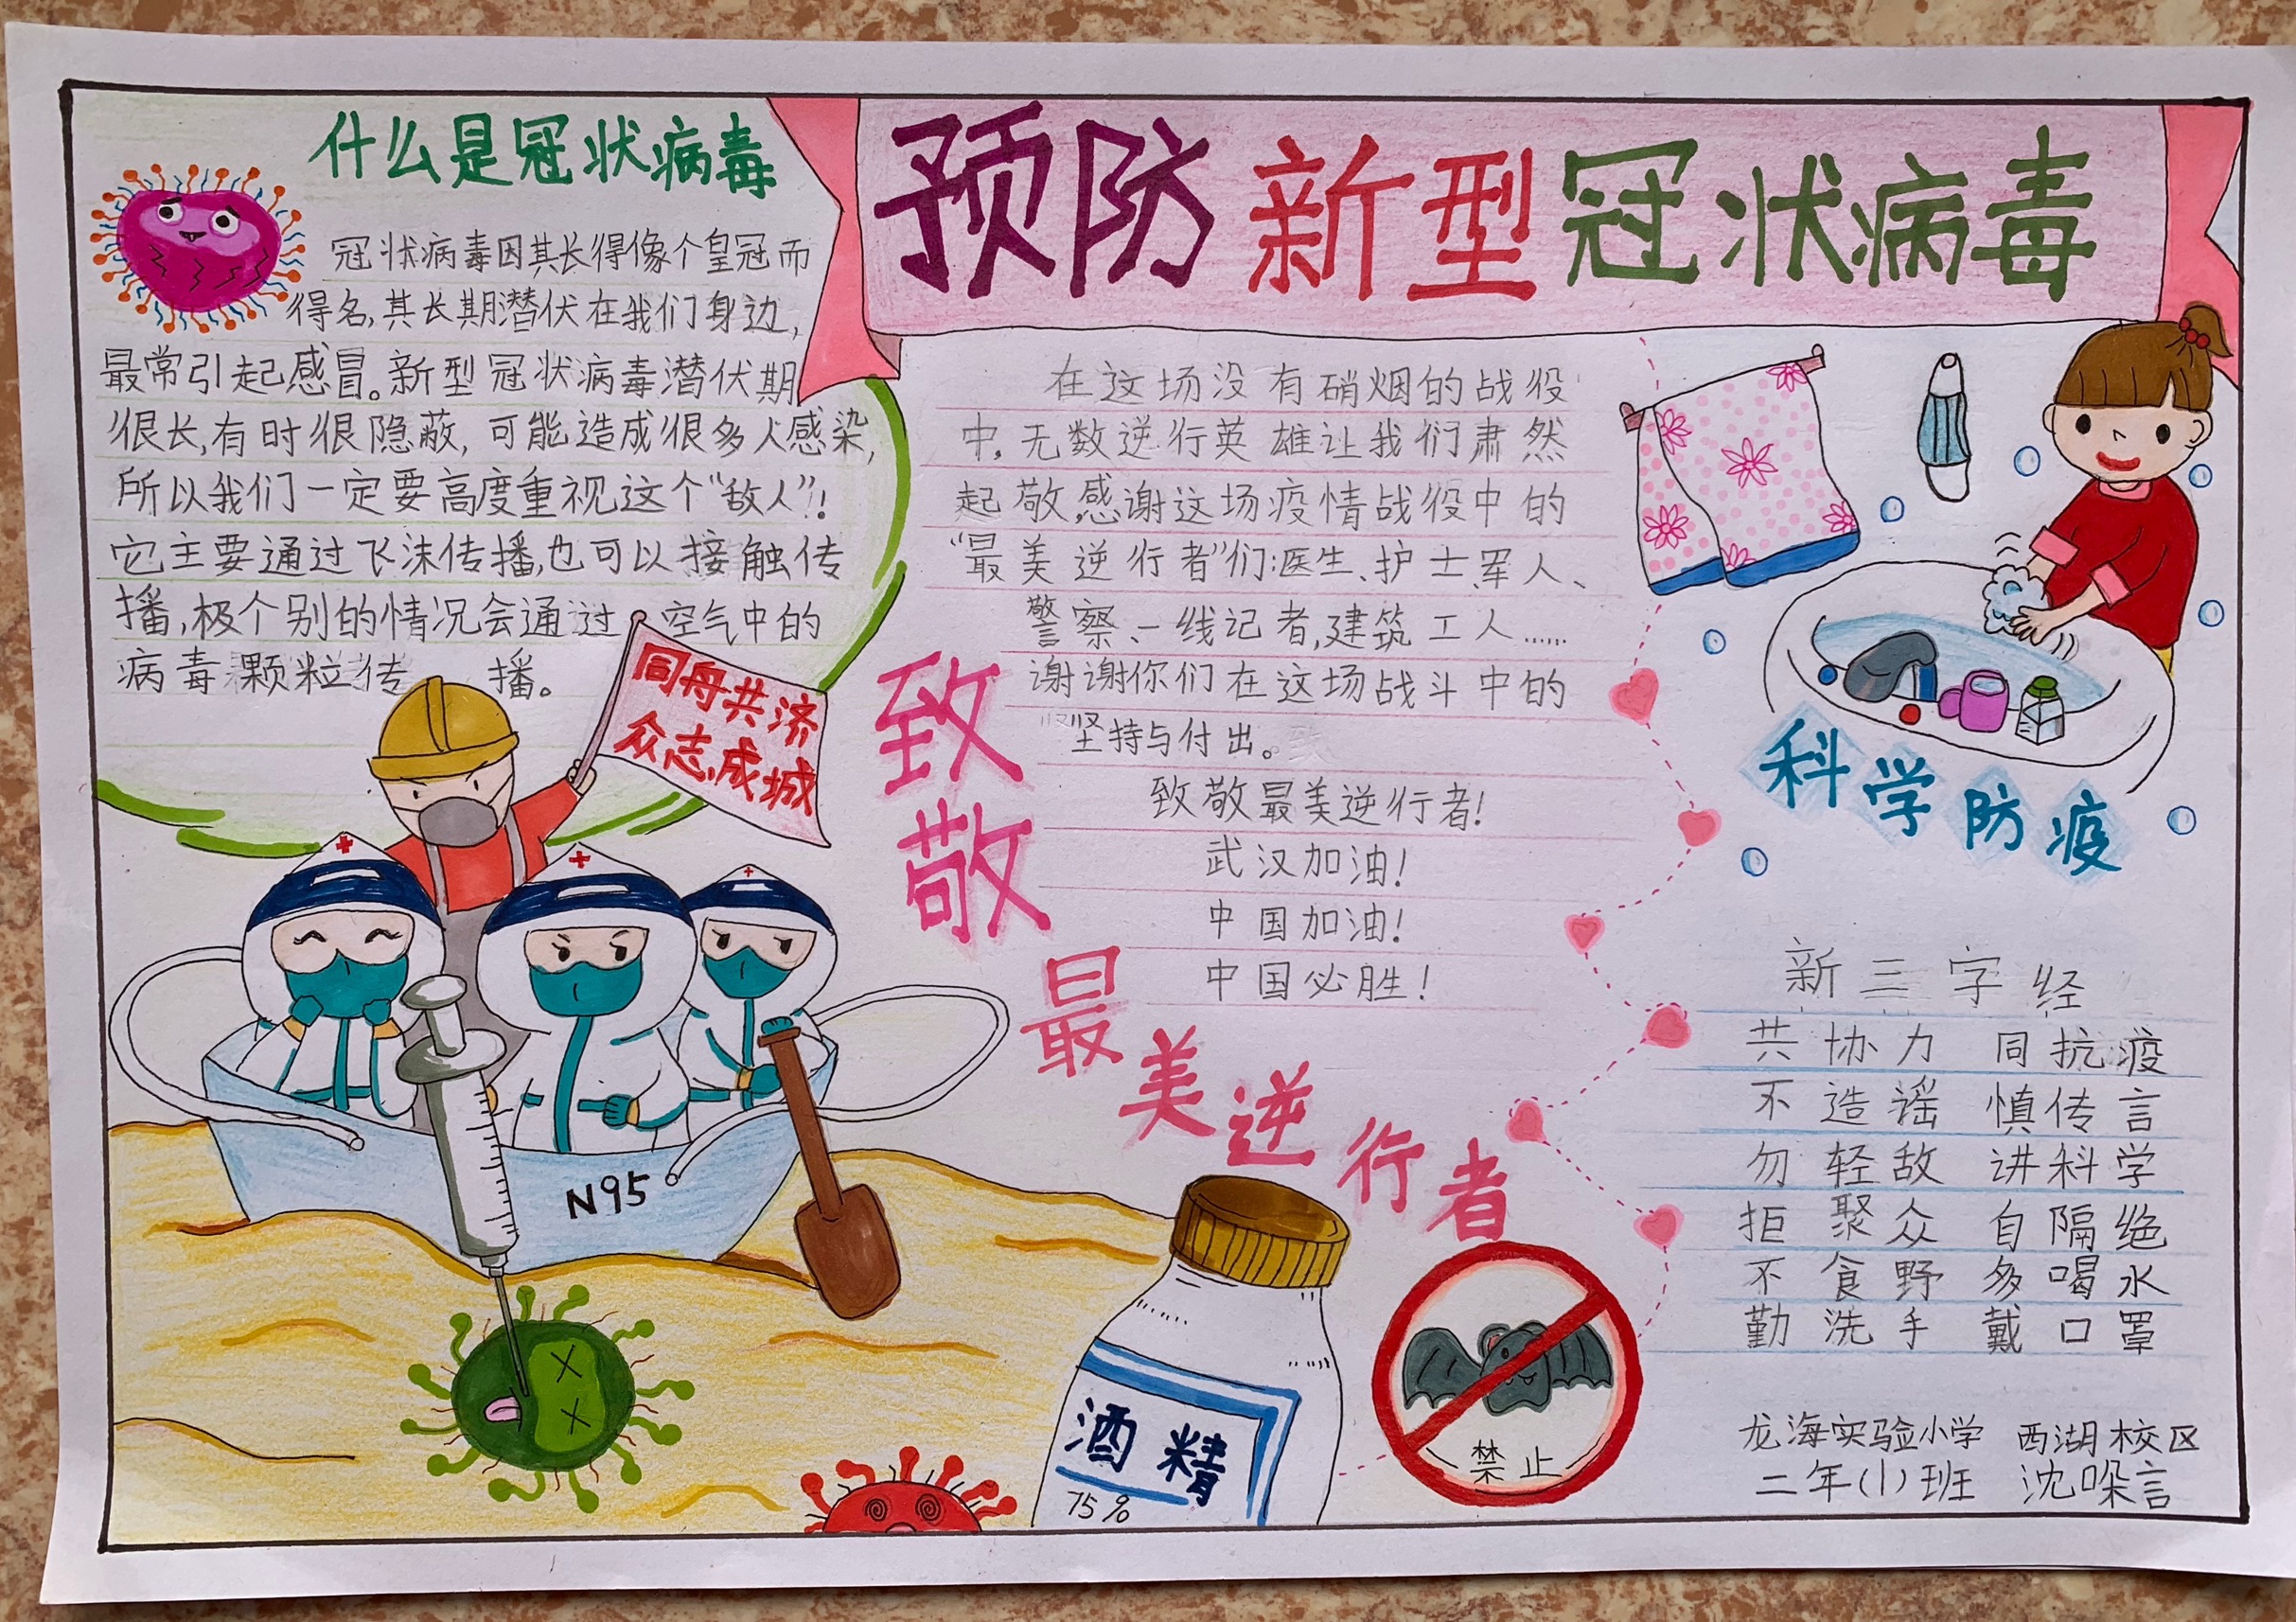 预防新型冠状病毒
什么是冠状病毒
冠状病毒因其长得像个皇冠而
得名,其长期潜伏在我们身边,
最常引起感冒。新型冠状病毒潜伏期
很长,有时很隐蔽,可能造成很多人感染,
所以我们一定要高度重视这个“敌人”!
它主要通过飞沫传播,也可以接触传
播,极个别的情况会通过空气中的
病毒颗粒传播。
同舟共济
众志成城
N95
致敬最美逆行者
在这场没有硝烟的战役
中,无数逆行英雄让我们肃然
起敬,感谢这场疫情战役中的
“最美逆行者”们:医生、护士、军人、
警察、一线记者,建筑工人……
谢谢你们在这场战斗中的
坚持与付出。
致敬最美逆行者!
武汉加油!
中国加油!
中国必胜!
科学防疫
新三字经
共协力 同抗疫
不造谣 慎传言
勿轻敌 讲科学
拒聚众 自隔绝
不食野 多喝水
勤洗手 戴口罩
酒精
75%
禁止
龙海实验小学 西湖校区
二年(1)班 沈哚言